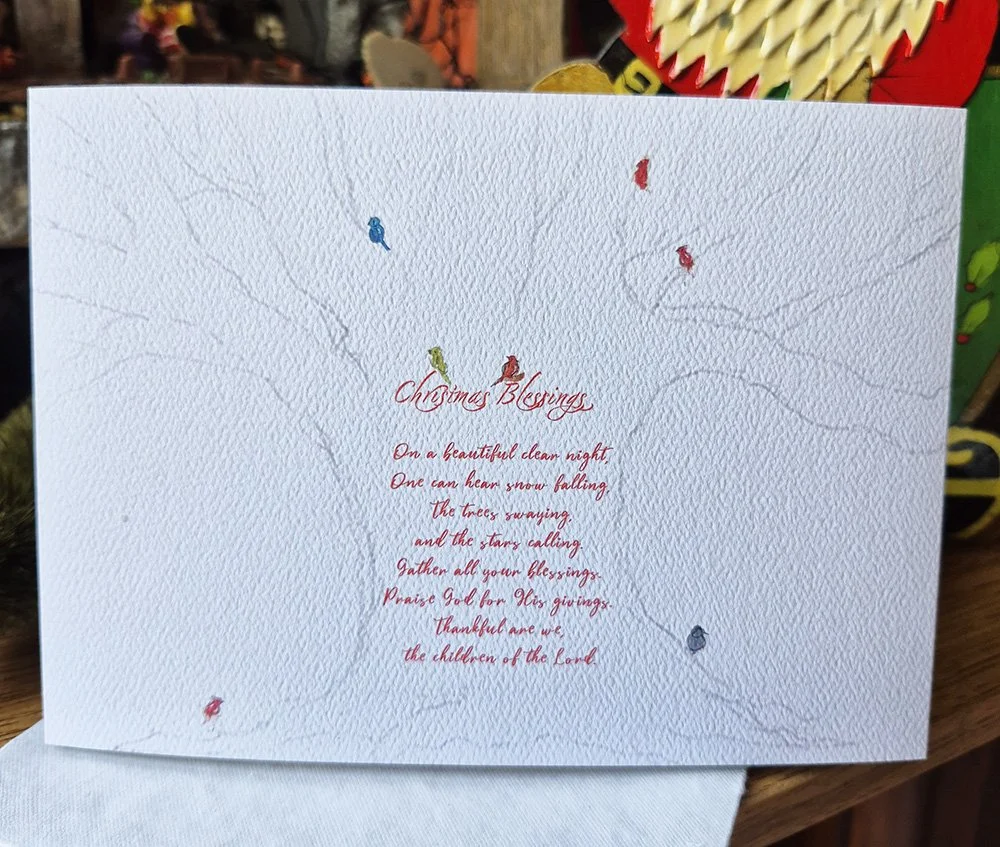 Christmas Blessings
On a beautiful clear night,
One can hear snow falling,
The trees swaying,
and the stars calling.
Gather all your blessings.
Praise God for His givings.
Thankful are we,
the children of the Lord.